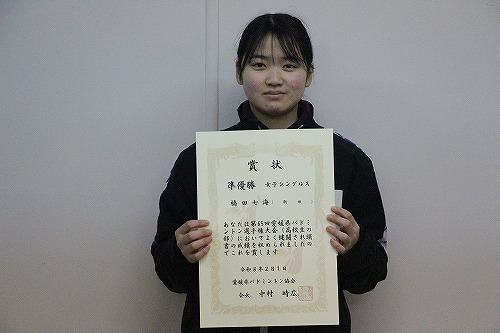 賞状
準優勝 女子シングルス
橋田七海(新田)
あなたは第65回愛媛県バドミ
ントン選手権大会(高校生の
部)においてよく健闘され頭
書の成績を収められましたの
でこれを賞します
令和8年2月1日
愛媛県バドミントン協会
会長 中村時広